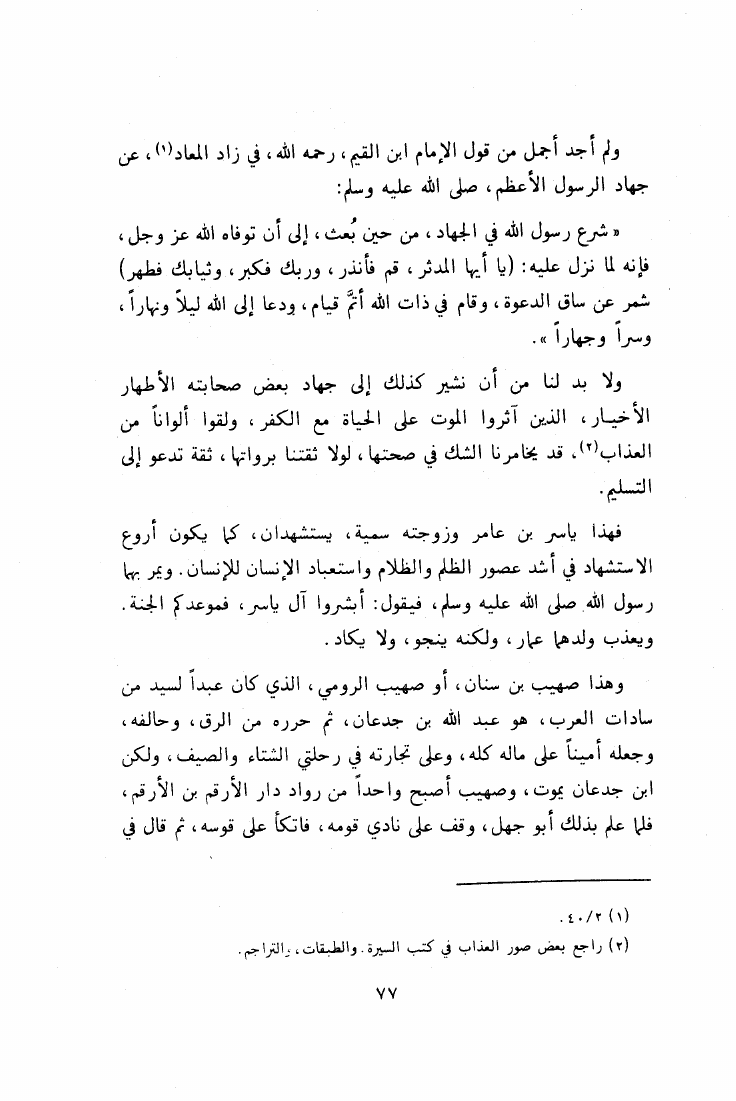 ولم أجد أجمل من قول الإمام ابن القيم، رحمه الله، في زاد المعاد(١)، عن
جهاد الرسول الأعظم، صلى الله عليه وسلم:
« شرع رسول الله في الجهاد، من حين بُعث، إلى أن توفاه الله عز وجل،
فإنه لما نزل عليه: (يا أيها المدثر، قم فأنذر، وربك فكبر، وثيابك فطهر)
شمر عن ساق الدعوة، وقام في ذات الله أتمَّ قيام، ودعا إلى الله ليلاً ونهاراً،
وسراً وجهاراً ».
ولا بد لنا من أن نشير كذلك إلى جهاد بعض صحابته الأطهار
الأخيار، الذين آثروا الموت على الحياة مع الكفر، ولقوا ألواناً من
العذاب(٢)، قد يخامرنا الشك في صحتها، لولا ثقتنا برواتها، ثقة تدعو إلى
التسليم.
فهذا ياسر بن عامر وزوجته سمية، يستشهدان، كما يكون أروع
الاستشهاد في أشد عصور الظلم والظلام واستعباد الإنسان للإنسان. ويمر بهما
رسول الله صلى الله عليه وسلم، فيقول: أبشروا آل ياسر، فموعدكم الجنة.
ويعذب ولدهما عمار، ولكنه ينجو، ولا يكاد.
وهذا صهيب بن سنان، أو صهيب الرومي، الذي كان عبداً لسيد من
سادات العرب، هو عبد الله بن جدعان، ثم حرره من الرق، وحالفه،
وجعله أميناً على ماله كله، وعلى تجارته في رحلتي الشتاء والصيف، ولكن
ابن جدعان يموت، وصهيب أصبح واحداً من رواد دار الأرقم بن الأرقم،
فلما علم بذلك أبو جهل، وقف على نادي قومه، فاتكأ على قوسه، ثم قال في
(١) ٤٠/٢.
(٢) راجع بعض صور العذاب في كتب السيرة. والطبقات، والتراجم.
٧٧